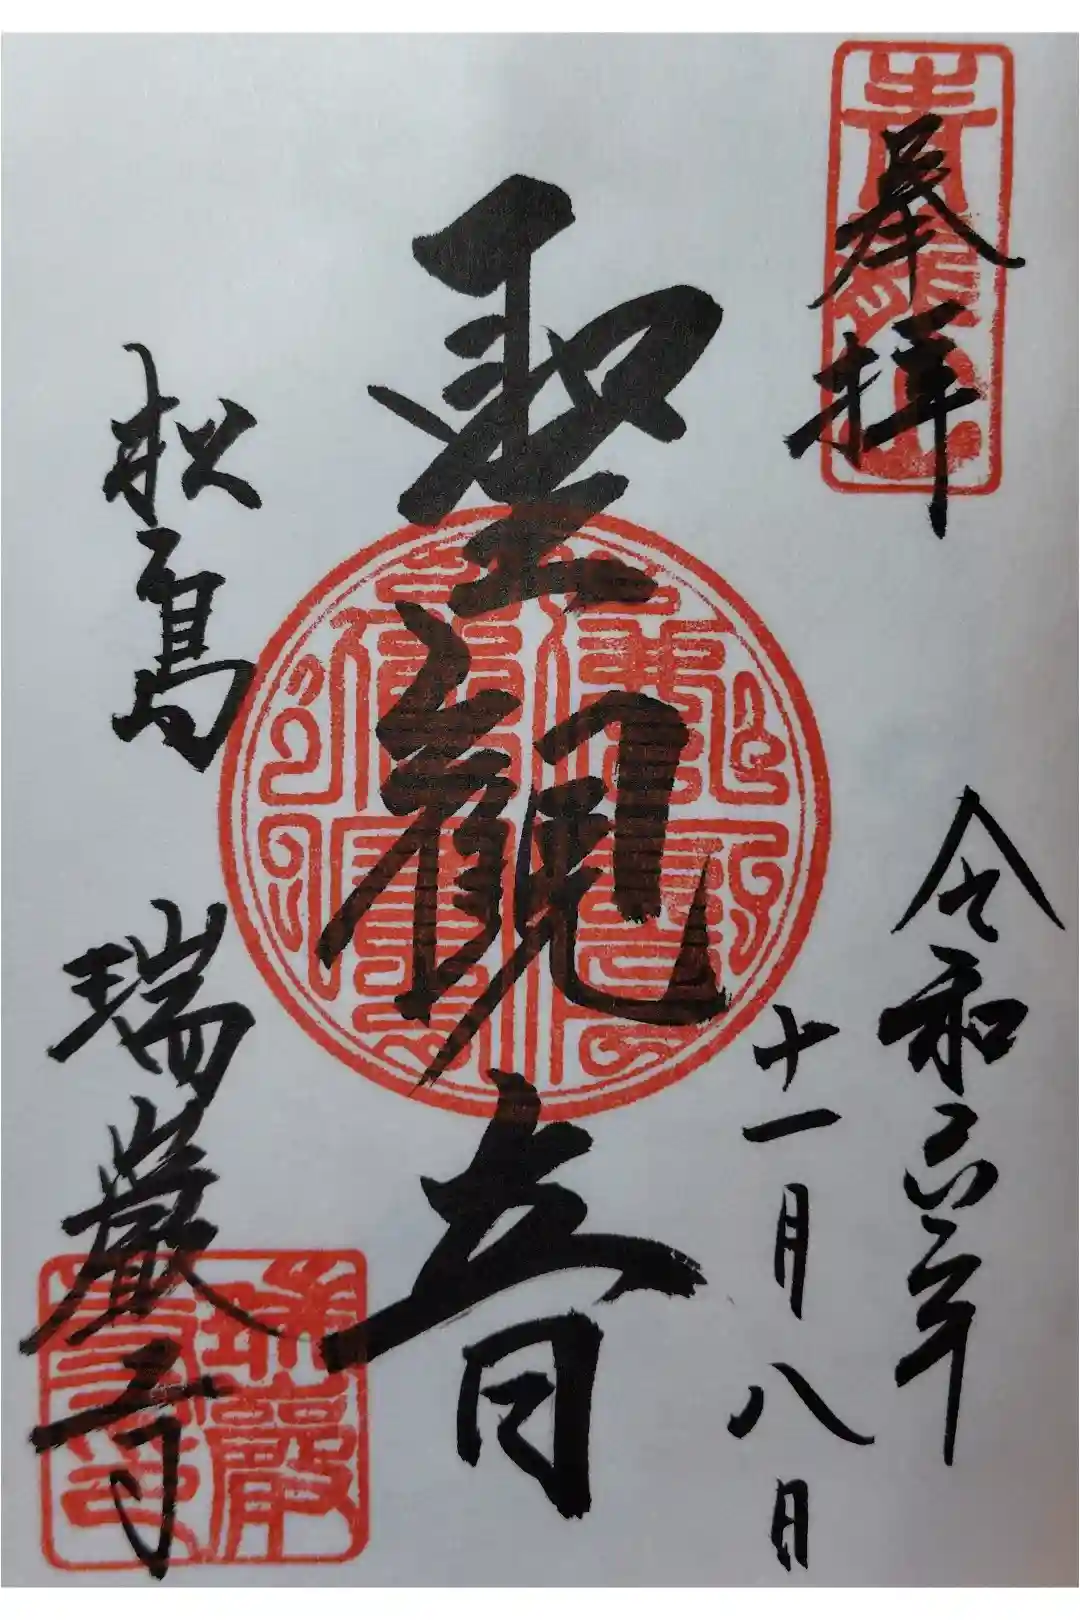 奉拝
青龍山
令和六年
十一月八日
聖観音
松島 瑞巌寺